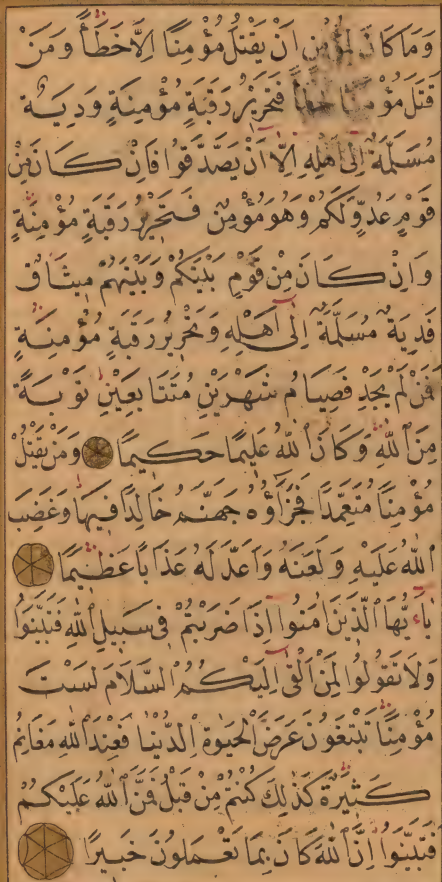 وَمَا كَانَ لِمُؤْمِنٍ اَنْ يَقْتُلَ مُؤْمِنًا اِلَّا خَطَأً وَمَنْ
قَتَلَ مُؤْمِنًا خَطَأً فَتَحْرِيْرُ رَقَبَةٍ مُؤْمِنَةٍ وَدِيَةٌ
مُسَلَّمَةٌ اِلٰى اَهْلِهِ اِلَّا اَنْ يَصَّدَّقُوا فَاِنْ كَانَ مِنْ
قَوْمٍ عَدُوٍّ لَكُمْ وَهُوَ مُؤْمِنٌ فَتَحْرِيْرُ رَقَبَةٍ مُؤْمِنَةٍ
وَاِنْ كَانَ مِنْ قَوْمٍ بَيْنَكُمْ وَبَيْنَهُمْ مِيثَاقٌ
فَدِيَةٌ مُسَلَّمَةٌ اِلٰى اَهْلِهِ وَتَحْرِيرُ رَقَبَةٍ مُؤْمِنَةٍ
فَمَنْ لَمْ يَجِدْ فَصِيَامُ شَهْرَيْنِ مُتَتَابِعَيْنِ تَوْبَةً
مِنَ اللهِ وَكَانَ اللهُ عَلِيمًا حَكِيمًا وَمَنْ يَقْتُلْ
مُؤْمِنًا مُتَعَمِّدًا فَجَزَاؤُهُ جَهَنَّمُ خَالِدًا فِيهَا وَغَضِبَ
اللهُ عَلَيْهِ وَلَعَنَهُ وَاَعَدَّ لَهُ عَذَابًا عَظِيمًا
يَاءَيُّهَا الَّذِينَ اٰمَنُوا اِذَا ضَرَبْتُمْ فِى سَبِيلِ اللهِ فَتَبَيَّنُوا
وَلَا تَقُولُوا لِمَنْ اَلْقٰى اِلَيْكُمُ السَّلَامَ لَسْتَ
مُؤْمِنًا تَبْتَغُونَ عَرَضَ الْحَيٰوةِ الدُّنْيَا فَعِنْدَ اللهِ مَغَانِمُ
كَثِيرَةٌ كَذٰلِكَ كُنْتُمْ مِنْ قَبْلُ فَمَنَّ اللهُ عَلَيْكُمْ
فَتَبَيَّنُوا اِنَّ اللهَ كَانَ بِمَا تَعْمَلُونَ خَبِيرًا